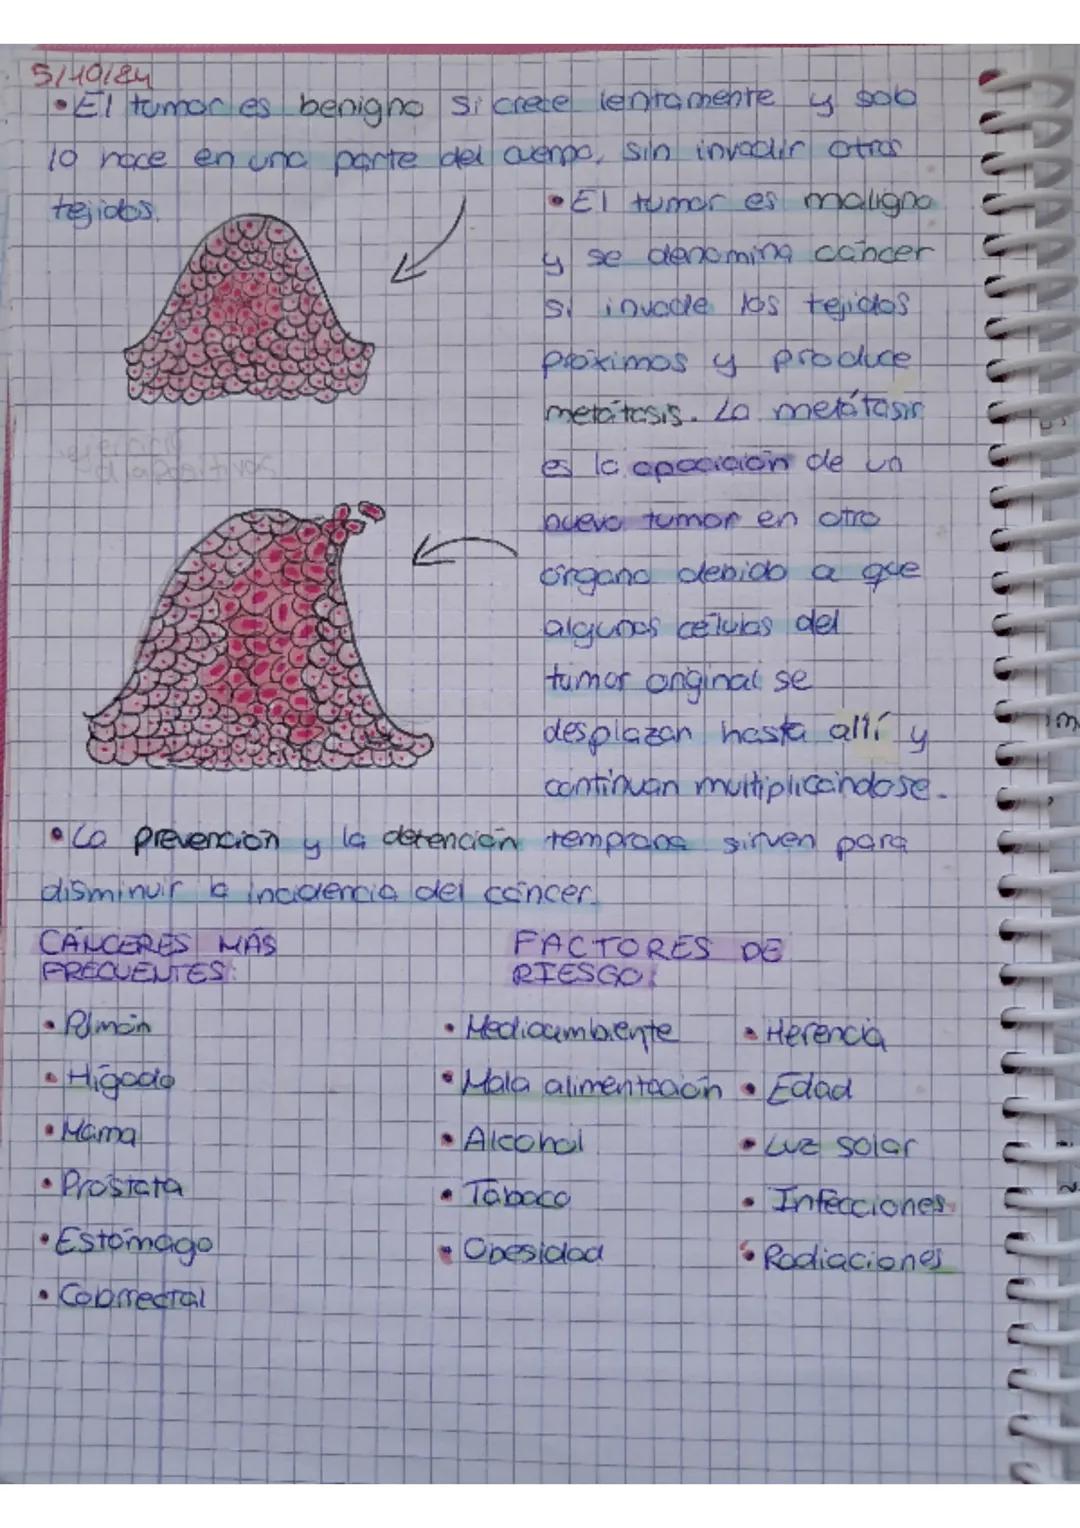 5/10/24
• El tumor es benigno si crece lentamente y solo
lo hace en una parte del cuerpo, sin invadir otros
tejidos.
• El tumor es maligno
y se denomina cáncer
si invade los tejidos
próximos y produce
metátasis. La metátasis
es la aparición de un
nuevo tumor en otro
órgano debido a que
algunas células del
tumor original se
desplazan hasta allí y
continuan multiplicándose.
• La prevención y la detención temprana sirven para
disminuir la incidencia del cáncer.
CÁNCERES MÁS
FRECUENTES:
• Pulmón
• Hígado
• Mama
• Próstata
• Estómago
• Colorrectal
FACTORES DE
RIESGO:
• Medioambiente
• Mala alimentación
• Alcohol
• Tabaco
• Obesidad
• Herencia
• Edad
• Luz solar
• Infecciones
• Radiaciones